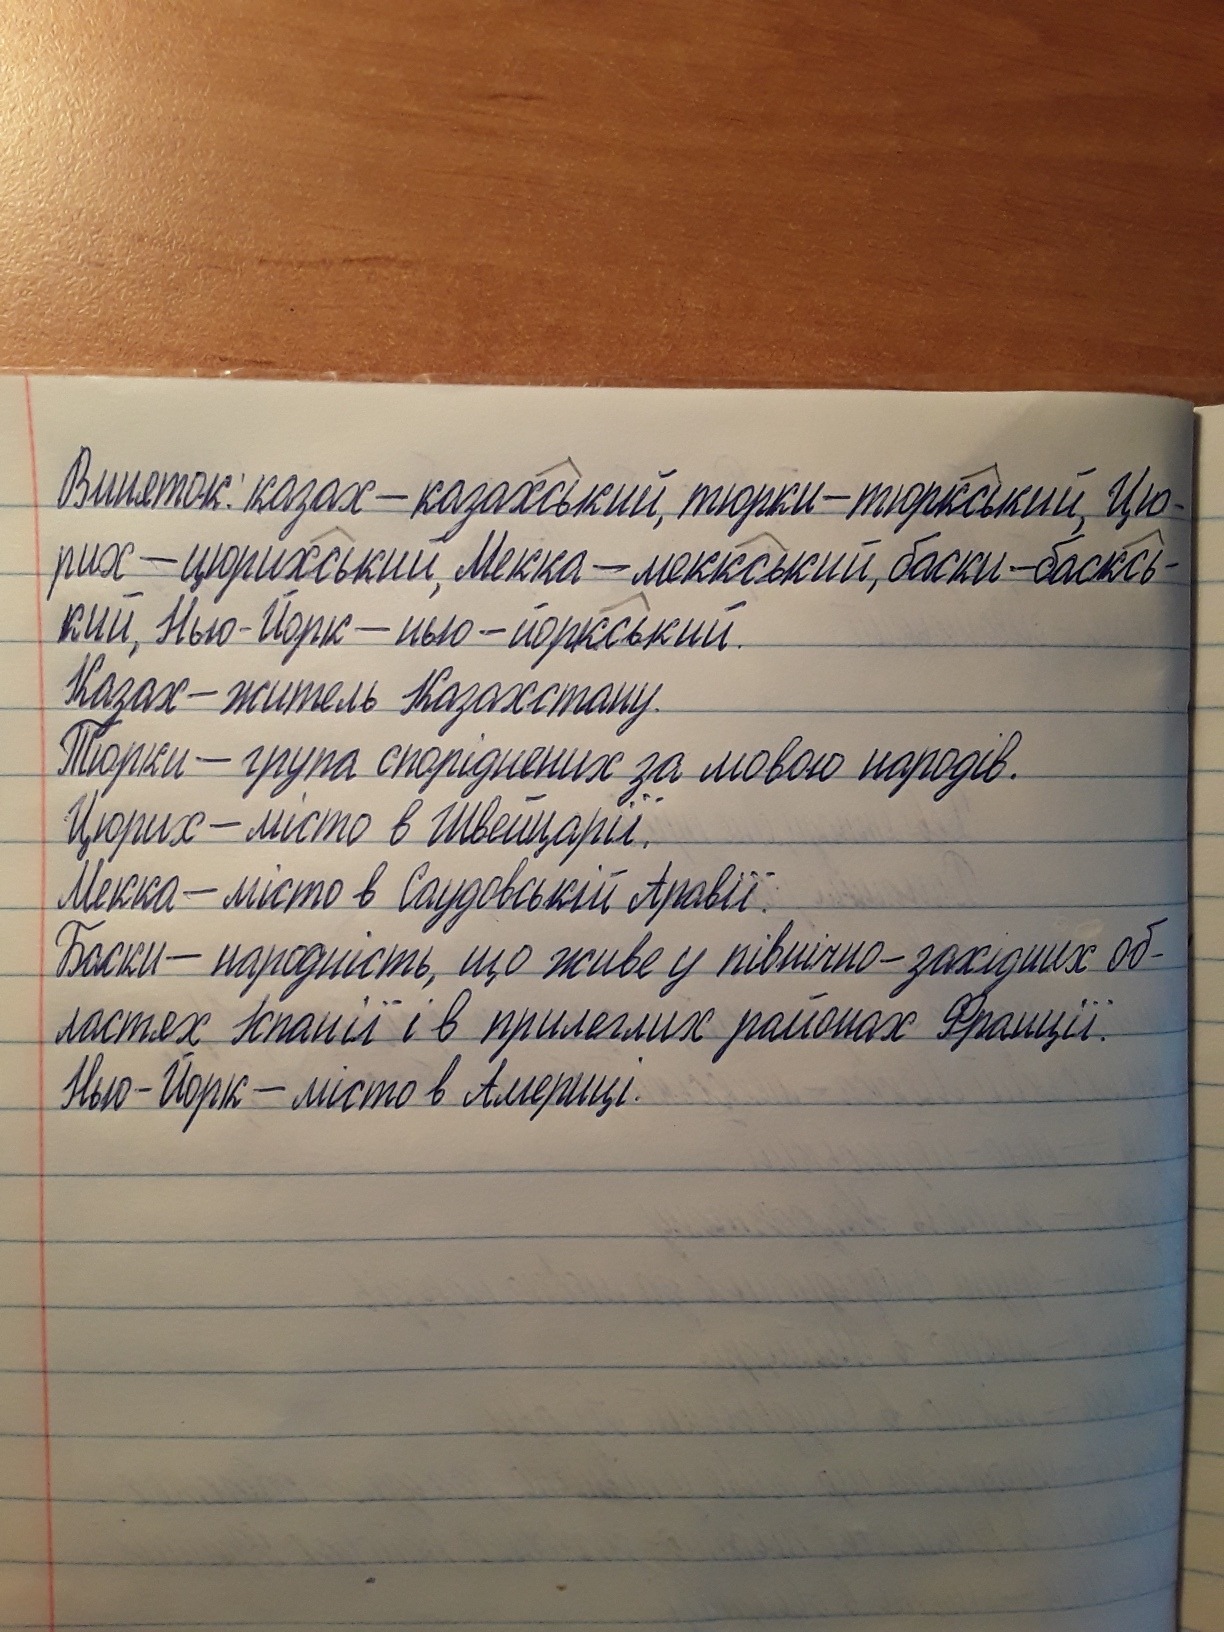 Виняток: казах – казахський, тюрки – тюркський, Цю-
рих – цюрихський, Мекка – меккський, баски – басксь-
кий, Нью-Йорк – нью-йоркський.
Казах – житель Казахстану.
Тюрки – група споріднених за мовою народів.
Цюрих – місто в Швейцарії.
Мекка – місто в Саудовській Аравії.
Баски – народність, що живе у північно-західних об-
ластях Іспанії і в прилеглих районах Франції.
Нью-Йорк – місто в Америці.